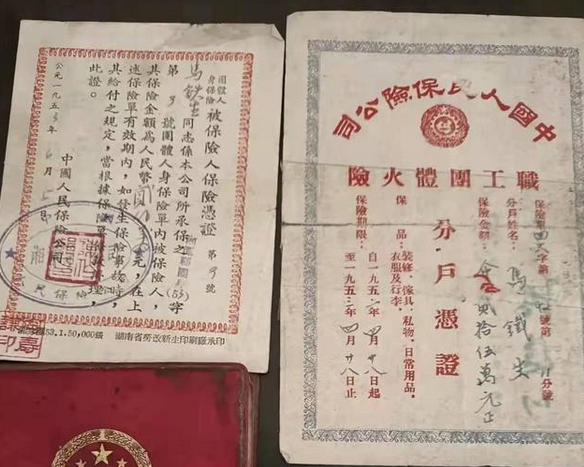 團體人身保險被保險人保險憑證
第 號
馬鉄生同志係本公司所承保之
字
第 號團體人身保險單內被保險人，
其保險金額爲人民幣
元，在上
述保險單有效期內，如發生保險事故時，
其給付之規定，當根據保險單
，
此證。
中國人民保險公司
公元一九五三年 月 日
53.1.50,000張 湖南省勞改新生印刷廠承印
中國人民保險公司
職工團體火險
分戶憑證
保險單 字第 號第 分號
分戶姓名：馬鐵生
保險金額：貳拾伍萬元正
保品：裝修、傢具、私物、日常用品，
衣服及行李。
保險期限：自一九五 年四月廿八日起
至一九五 年四月廿八日止